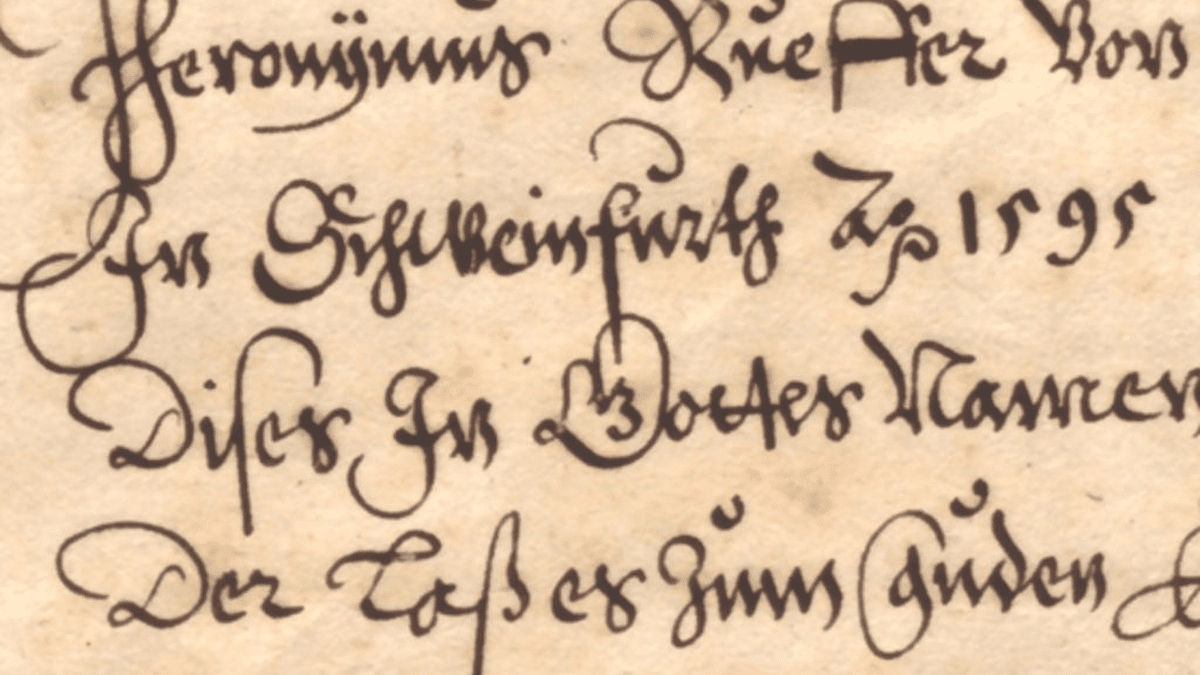 Heronÿmus Rueffer Von
In Schweinfurth Ao 1595
Dises In Gottes Namen
Der Laß es Zum guden